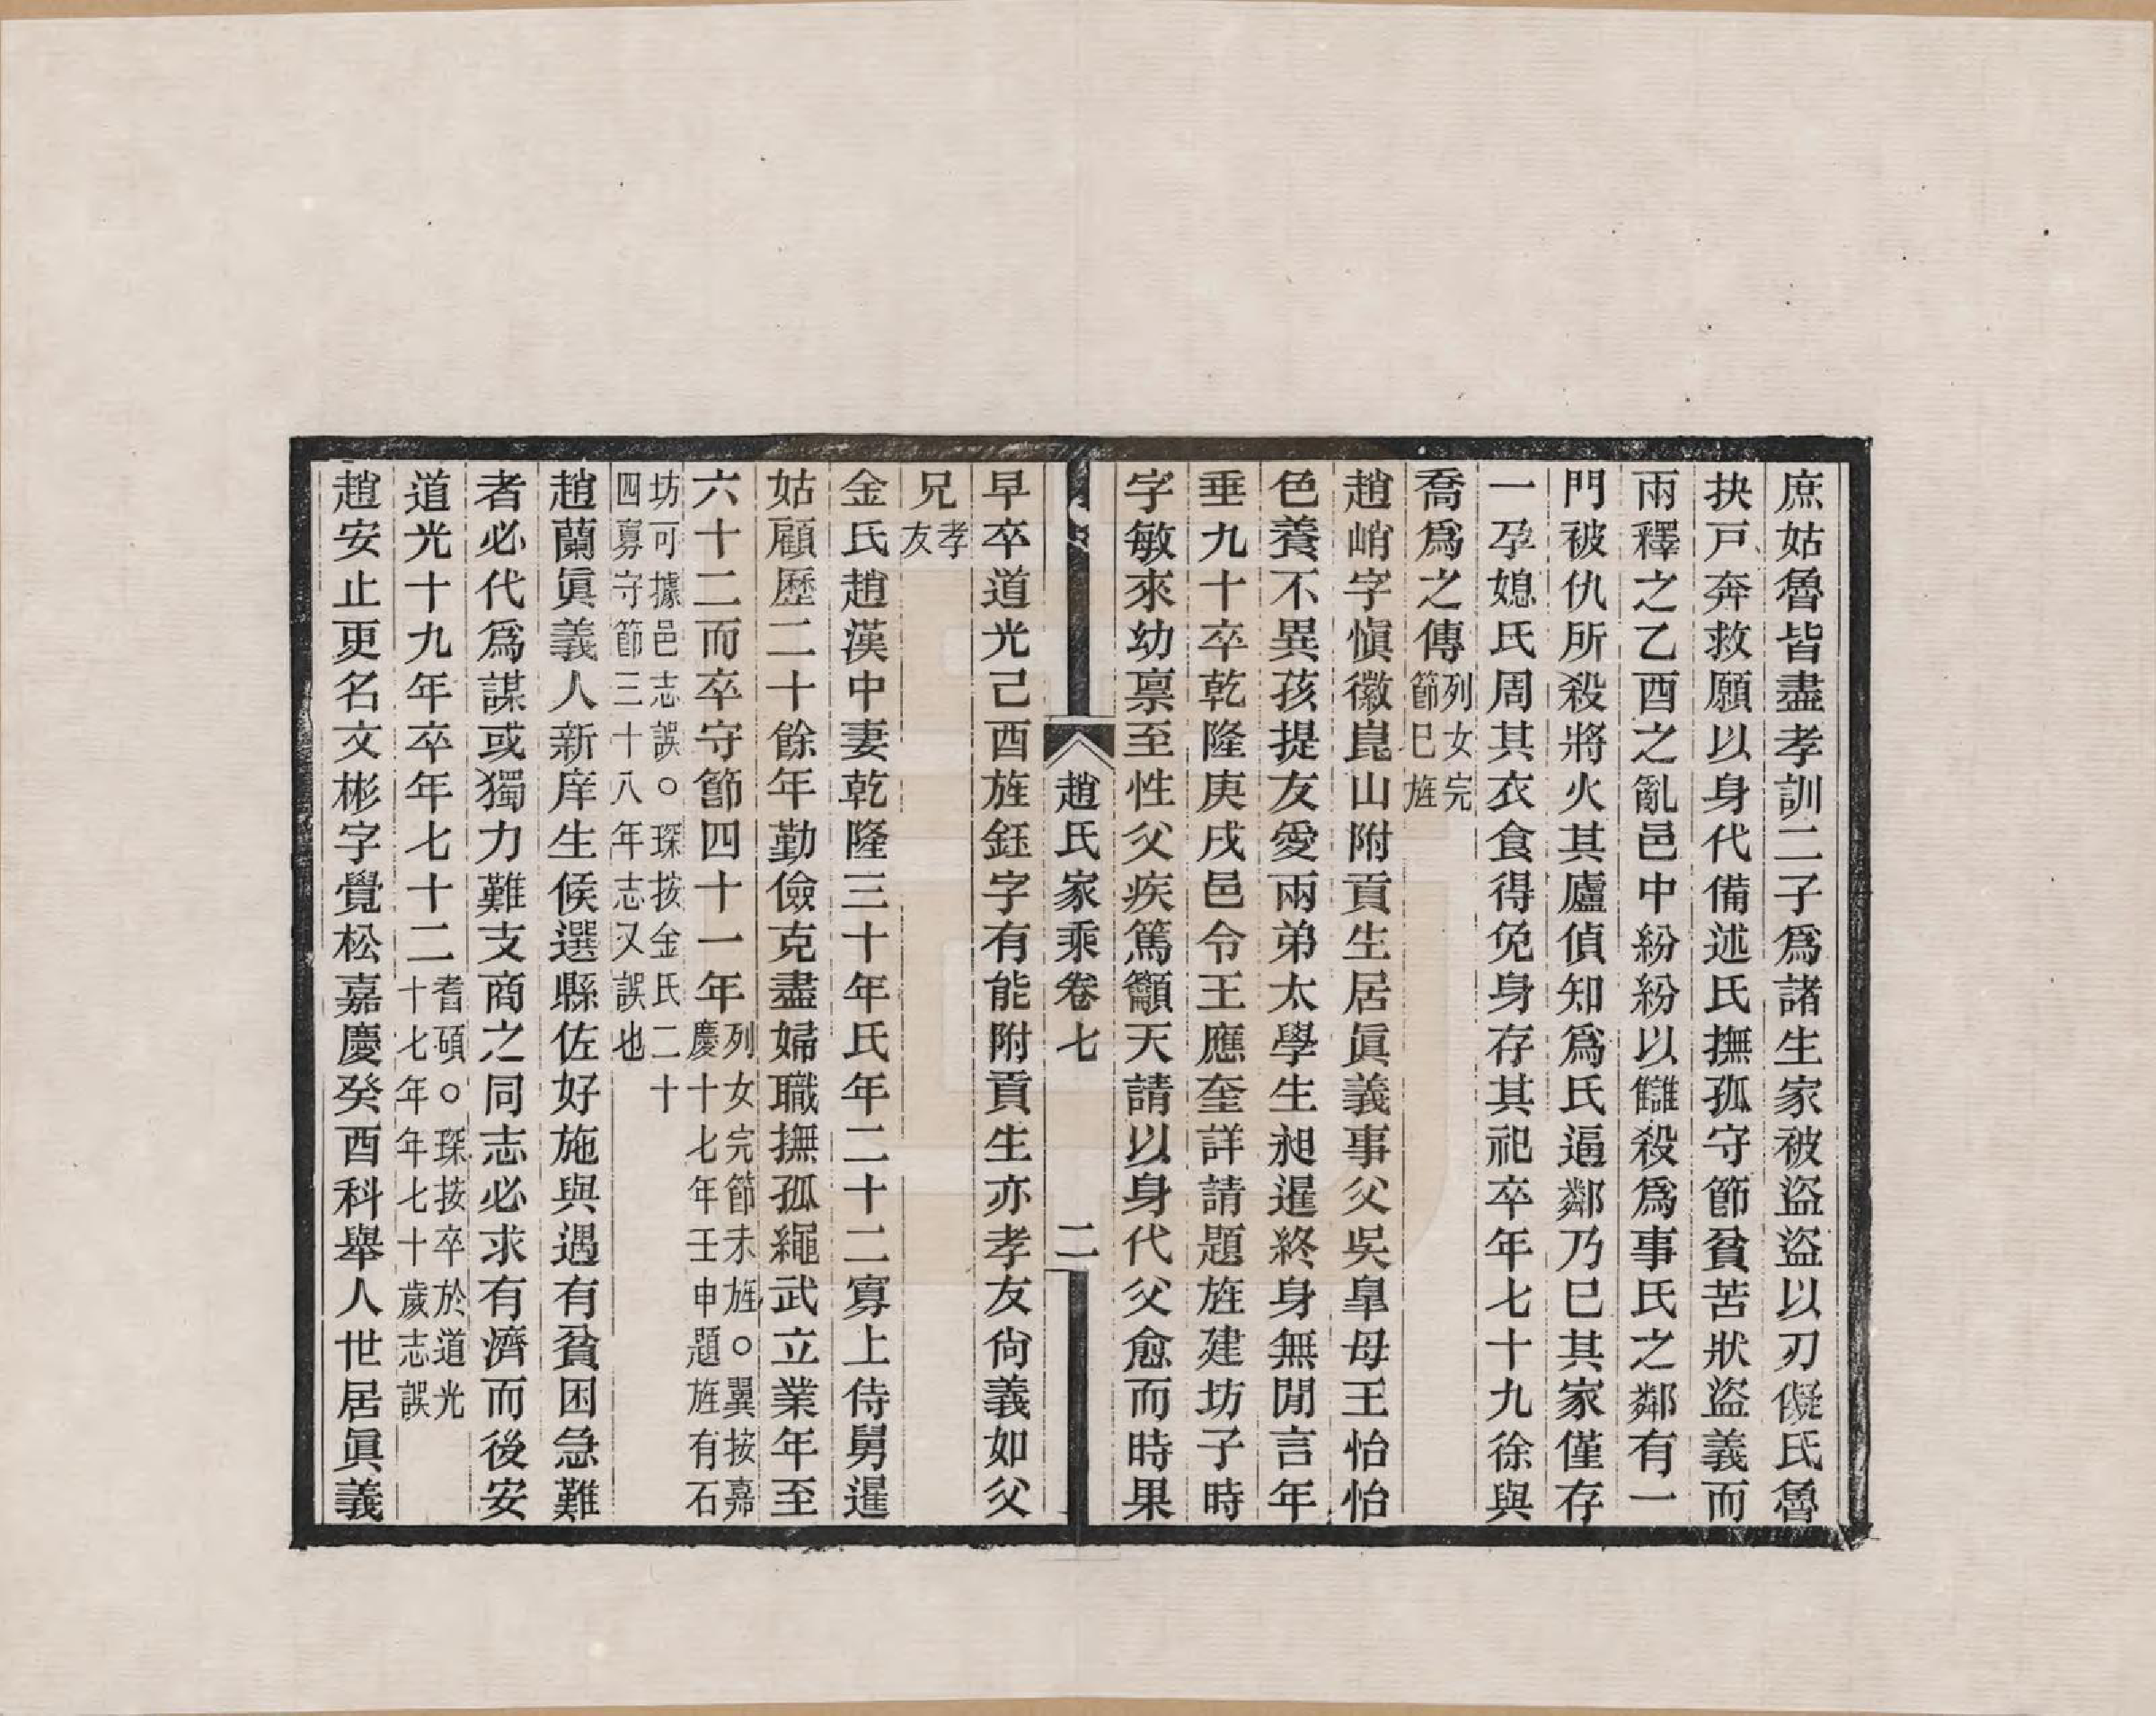 庶姑魯皆盡孝訓二子爲諸生家被盜盜以刃儗氏魯
抉戸奔救願以身代備述氏撫孤守節貧苦狀盜義而
兩釋之乙酉之亂邑中紛紛以讎殺爲事氏之鄰有一
門被仇所殺將火其廬偵知爲氏逼鄰乃巳其家僅存
一孕媳氏周其衣食得免身存其祀卒年七十九徐與
喬爲之傳列女完
節巳旌
趙峭字愼徽崑山附貢生居眞義事父吳臯母王怡怡
色養不異孩提友愛兩弟太學生昶暹終身無閒言年
垂九十卒乾隆庚戌邑令王應奎詳請題旌建坊子時
字敏來幼禀至性父疾篤籲天請以身代父愈而時果
趙氏家乘卷七
二
早卒道光己酉旌鈺字有能附貢生亦孝友尙義如父
兄孝
友
金氏趙漢中妻乾隆三十年氏年二十二寡上侍舅暹
姑顧歷二十餘年勤儉克盡婦職撫孤繩武立業年至
六十二而卒守節四十一年列女完節未旌○翼按嘉
慶十七年壬申題旌有石
坊可據邑志誤○琛按金氏二十
四寡守節三十八年志又誤也
趙蘭眞義人新庠生候選縣佐好施與遇有貧困急難
者必代爲謀或獨力難支商之同志必求有濟而後安
道光十九年卒年七十二耆碩○琛按卒於道光
十七年年七十歲志誤
趙安止更名文彬字覺松嘉慶癸酉科舉人世居眞義